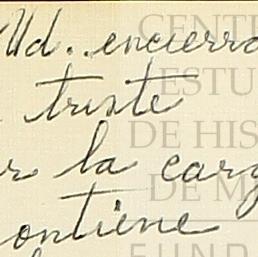 Ud. encierra
triste
r la carg
ontiene
CENT
ESTU
DE HIS
DE M
FUND